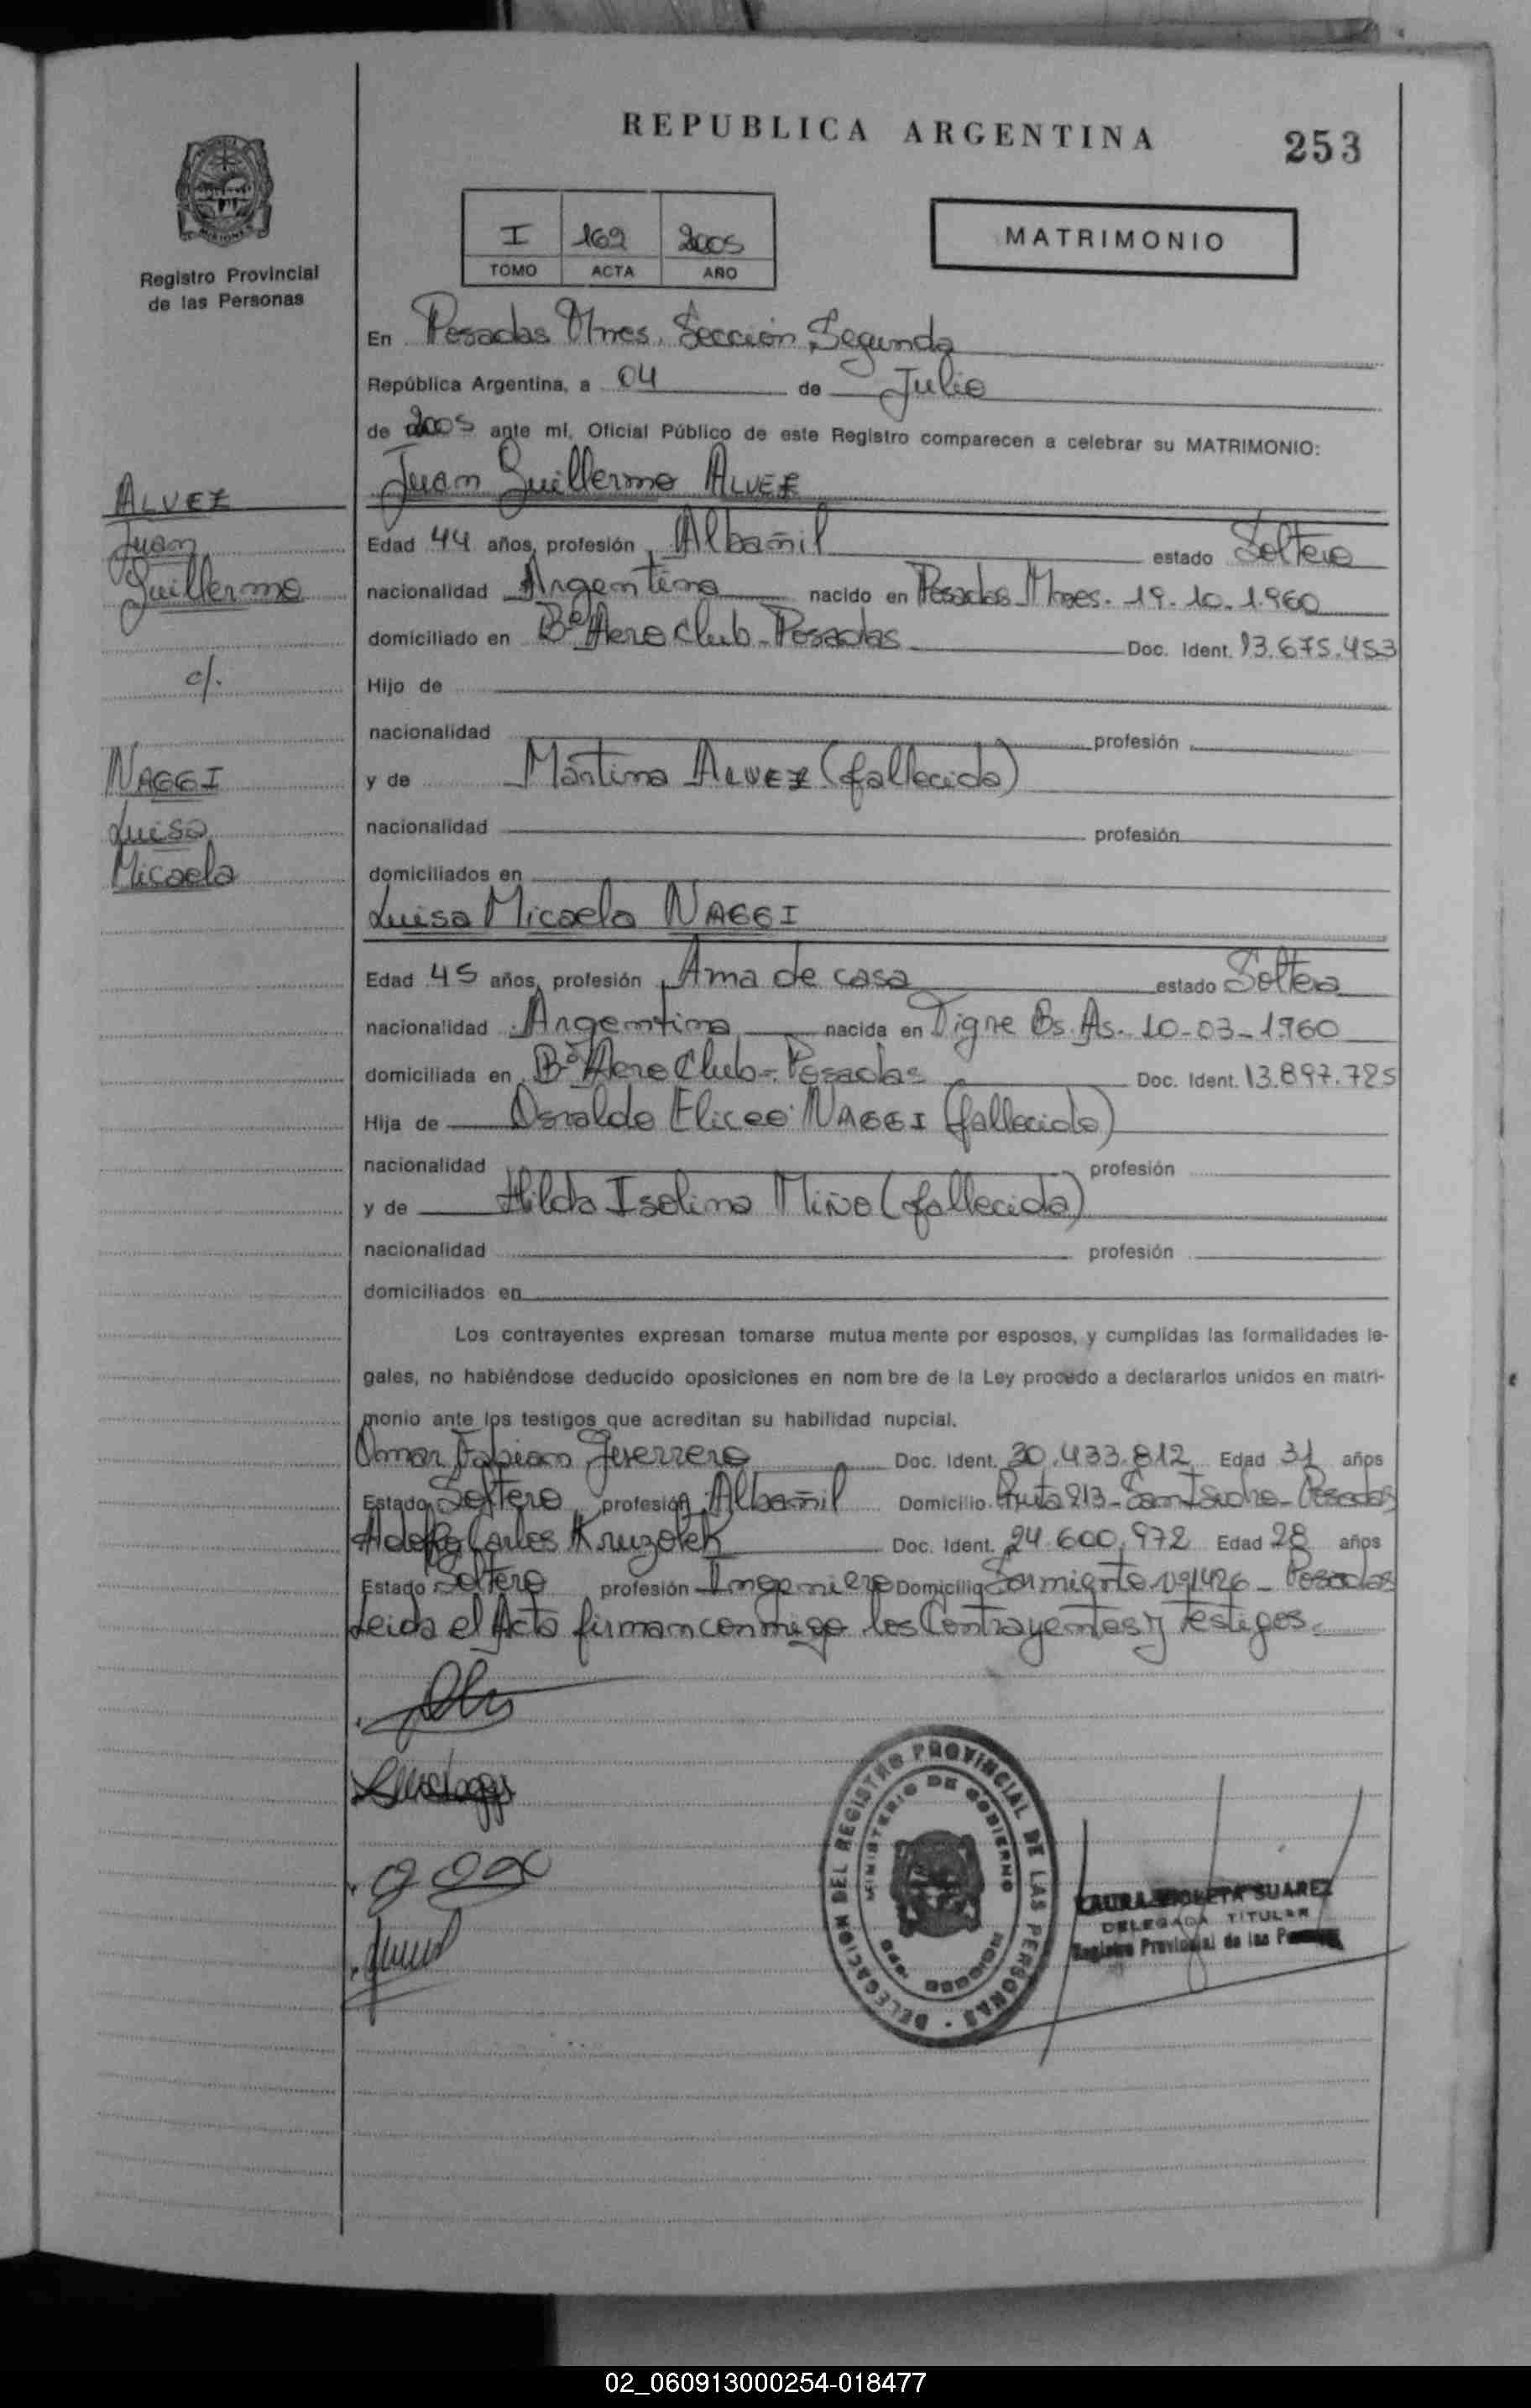 REPUBLICA ARGENTINA
253
I 169 2005
TOMO ACTA AÑO
MATRIMONIO
MISIONES
Registro Provincial
de las Personas
En Posadas Mnes. Sección Segunda
República Argentina, a 04 de Julio
de 2005 ante mí, Oficial Público de este Registro comparecen a celebrar su MATRIMONIO:
Juan Guillermo ALVEZ
ALVEZ
Juan
Guillermo
c/.
NAGGI
Luisa
Micaela
Edad 44 años, profesión Albañil estado Soltero
nacionalidad Argentina nacido en Posadas Mnes. 19.10.1.960
domiciliado en Bº Aero Club - Posadas Doc. Ident. 13.675.453
Hijo de
nacionalidad profesión
y de Mártima ALVEZ (fallecida)
nacionalidad profesión
domiciliados en
Luisa Micaela NAGGI
Edad 45 años, profesión Ama de casa estado Soltera
nacionalidad Argentina nacida en Tigre Bs. As. 10-03-1960
domiciliada en Bº Aero Club - Posadas Doc. Ident. 13.897.725
Hija de Osvaldo Eliceo NAGGI (fallecido)
nacionalidad profesión
y de Hilda Isolina MIÑO (fallecida)
nacionalidad profesión
domiciliados en
Los contrayentes expresan tomarse mutua mente por esposos, y cumplidas las formalidades le-
gales, no habiéndose deducido oposiciones en nom bre de la Ley procedo a declararlos unidos en matri-
monio ante los testigos que acreditan su habilidad nupcial.
Omar Fabian Guerrero Doc. Ident. 30.433.812 Edad 31 años
Estado Soltero profesión Albañil Domicilio Ruta 213 - San Isidro - Posadas
Adolfo Carlos Kruzolek Doc. Ident. 24.600.972 Edad 28 años
Estado Soltero profesión Ingeniero Domicilio Sarmiento Nº1426 - Posadas
Leida el Acta firman conmigo los Contrayentes y testigos.
DELEGACION DEL REGISTRO PROVINCIAL DE LAS PERSONAS
MINISTERIO DE GOBIERNO
LAURA VIOLETA SUAREZ
DELEGADA TITULAR
Registro Provincial de las Personas
02_060913000254-018477